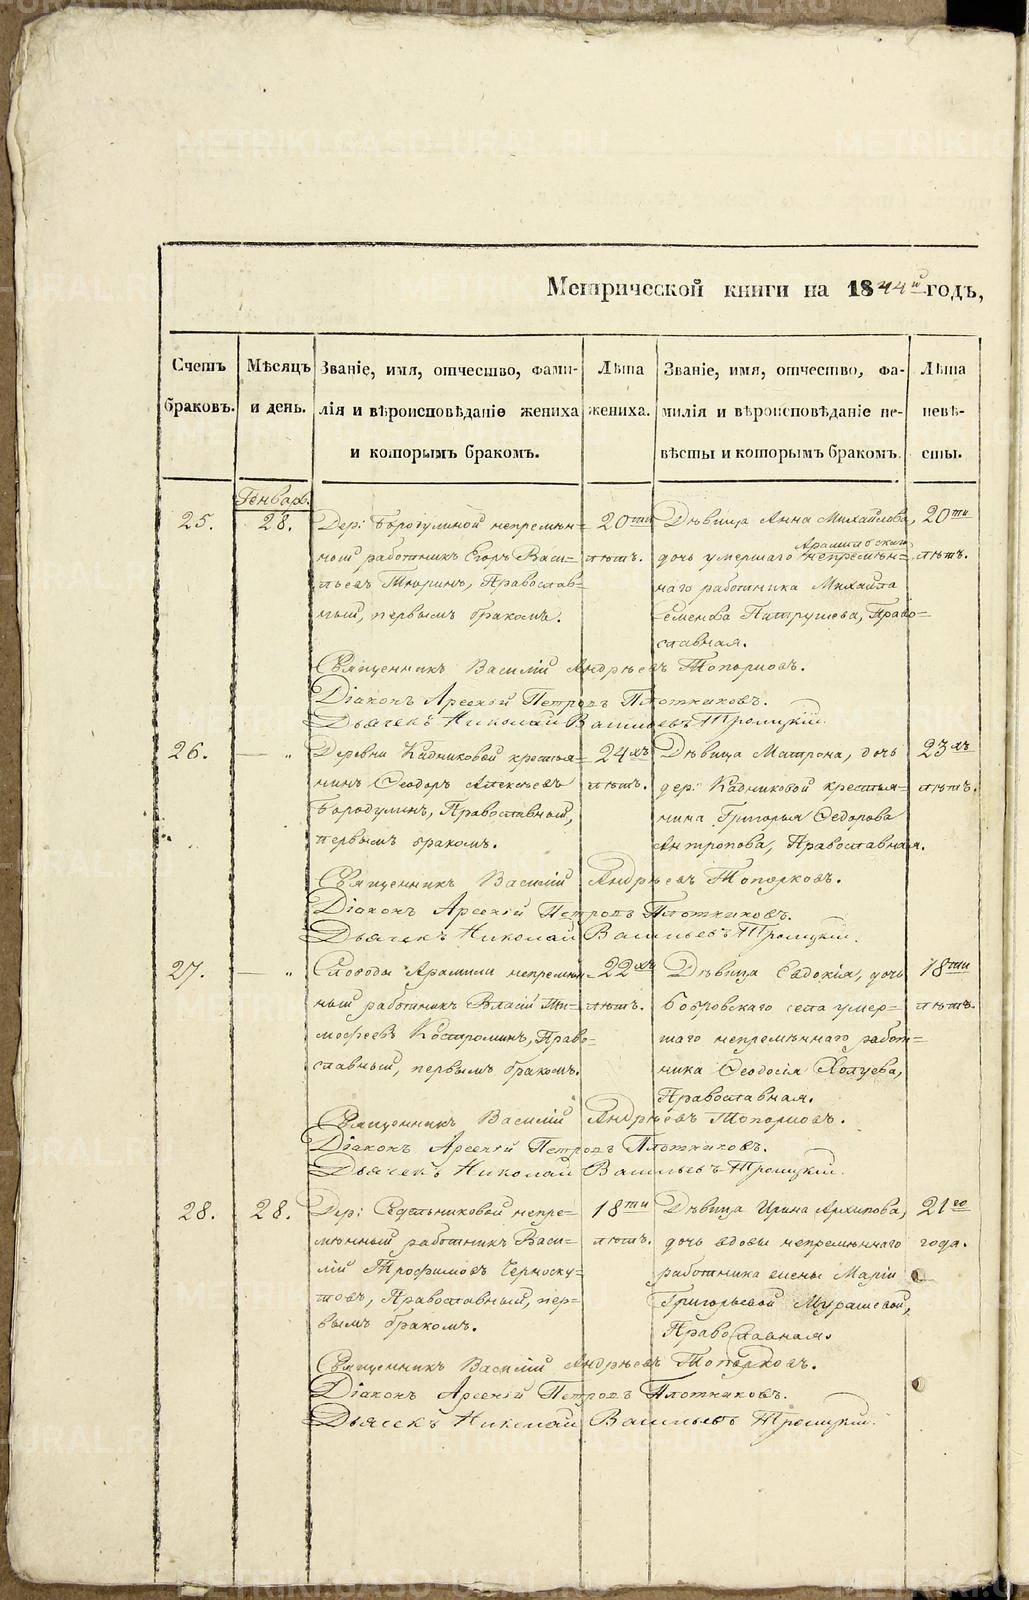 Метрической книги на 1844й годъ,
Счетъ браковъ.
Мѣсяцъ и день.
Званіе, имя, отчество, фами-
лія и вѣроисповѣданіе жениха
и которымъ бракомъ.
Лѣта жениха.
Званіе, имя, отчество, фа-
милія и вѣроисповѣданіе не-
вѣсты и которымъ бракомъ.
Лѣта невѣ-
сты.
Генварь.
25.
28.
Дер: Бородулиной непремѣн-
ный работникъ Егоръ Васи=
льевъ Тюринъ, Православ-
ный, первымъ бракомъ.
20ти
лѣтъ.
Дѣвица Анна Михайлова,
Арамильскаго
дочь умершаго непремѣн-
наго работника Михаила
Семенова Патрушева, Право=
славная.
20ти
лѣтъ.
Священникъ Василій Андрѣевъ Топорковъ.
Діаконъ Арсеній Петровъ Плотниковъ.
Дьячекъ Николай Васильевъ Троицкій.
26.
— „
Деревни Кадниковой крестья=
нинъ Ѳеодоръ Алексѣевъ
Бородулинъ, Православный,
первымъ бракомъ.
24хъ
лѣтъ.
Дѣвица Матрона, дочь
дер: Кадниковой крестья=
нина Григорья Ѳедорова
Антропова, Православная.
23хъ
лѣтъ.
Священникъ Василій Андрѣевъ Топорковъ.
Діаконъ Арсеній Петровъ Плотниковъ.
Дьячекъ Николай Васильевъ Троицкій.
27.
— „
Слободы Арамили непремѣн-
ный работникъ Власій Ти=
мофеевъ Костроминъ, Право=
славный, первымъ бракомъ.
22хъ
лѣтъ.
Дѣвица Евдокія, дочь
Бобровскаго села умер=
шаго непремѣннаго работ=
ника Ѳеодосія Холуева,
Православная.
18ти
лѣтъ.
Священникъ Василій Андрѣевъ Топорковъ.
Діаконъ Арсеній Петровъ Плотниковъ.
Дьячекъ Николай Васильевъ Троицкій.
28.
28.
Дер: Седельниковой непре=
мѣнный работникъ Васи=
лій Трофимовъ Черноску=
товъ, Православный, пер=
вымъ бракомъ.
18ти
лѣтъ.
Дѣвица Ирина Архипова,
дочь вдовы непремѣннаго
работника жены Маріи
Григорьевой Мурашевой,
Православная.
21го
года.
Священникъ Василій Андрѣевъ Топорковъ.
Діаконъ Арсеній Петровъ Плотниковъ.
Дьячекъ Николай Васильевъ Троицкій.
METRIKI.GASO-URAL.RU